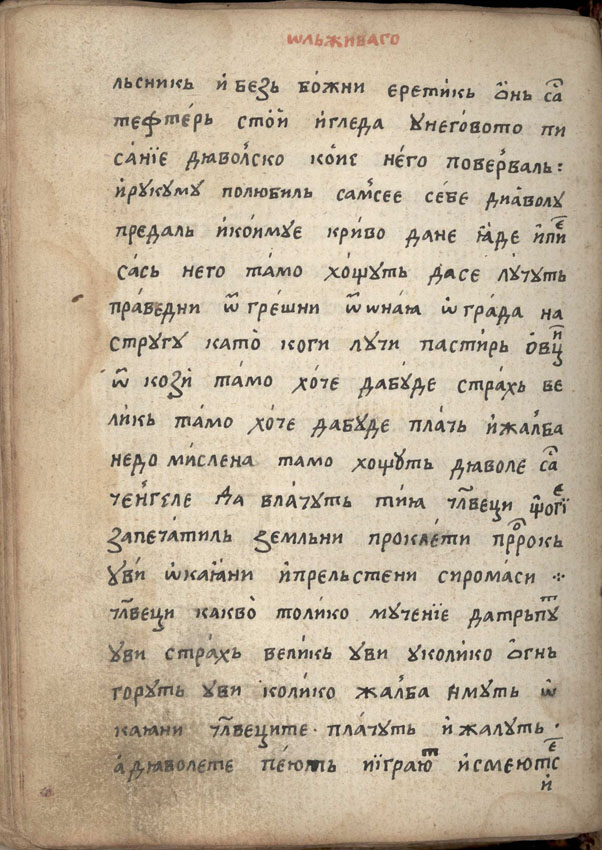 ѡльживаго
льсникь и҆ безь бо́жни еретикь ѻ҆нь са
тефте́рь сто́й и҆гледа ꙋнего́вото пи
са́нїе дꙗволско ко́ис не́го повервалъ:
и҆рꙋкꙋмꙋ полюбиль самсее се́бе диа́волꙋ
предаль и҆ко́имꙋе кри́во дане ꙗ҆де и҆пие
са́сь него та́мо хо́щꙋть дасе лꙋ́чꙋть
пра́ведни ѿ гре́шни ѿ ѡнаꙗ ѡ҆гра́да на
стрꙋгꙋ като̀ коги лꙋчи пасти́рь ѻ҆вци
ѿ кози́ та́мо хо́че дабꙋ́де стра́хь ве
ли́кь та́мо хо́че дабꙋ́де пла́чь и҆жалба
недо мислена тамо хощꙋть дꙗволе са
че́нгеле да вла́чꙋть ти́ꙗ чл҃веци що́гие
запеча́тиль земльни прокле́ти пррⷪ҇окь
ꙋви ѡ҆каꙗ́ни и҆прельстени сирома́си ⁘
чл҃веци какво̀ толико мꙋчени́е датрьпꙋт
ꙋви стра́хь вели́кь ꙋви ꙋколико ѻ҆гнь
горꙋть ꙋви коли́ко жалба и҆мꙋть ѡ҆
каꙗни чл҃веците · пла́чꙋть и҆ жалꙋть ·
а҆ дꙗволете пе́ють и҆играют и҆смеютсе
и҆